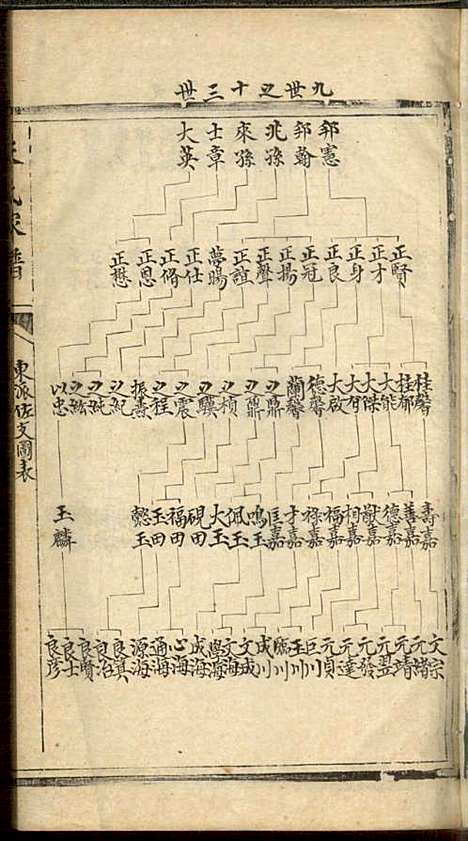 九世之十三世
邹憲
邹翰
兆孫
來孫
士章
大英
正賢
正才
正身
正良
正冠
正揚
正聲
正誼
夢暘
正仕
正脩
正恩
正懋
桂馨
桂郁
大能
大傑
大智
大啟
德馨
蘭馨
以鼎
以鼐
以楨
以驥
以震
以程
振壽
以紀
以純
以紘
以忠
壽嘉
善嘉
德嘉
獻嘉
相嘉
福嘉
祿嘉
才嘉
匡嘉
鳴玉
佩玉
大玉
硯田
福田
玉田
懿玉
玉麟
文宗
元緒
元靖
元翌
元發
元達
元貞
巨川
玉川
成川
文成
文海
學海
成海
心海
通海
源海
良真
良治
良賢
良士
良彦
家譜
東派佐文圖表